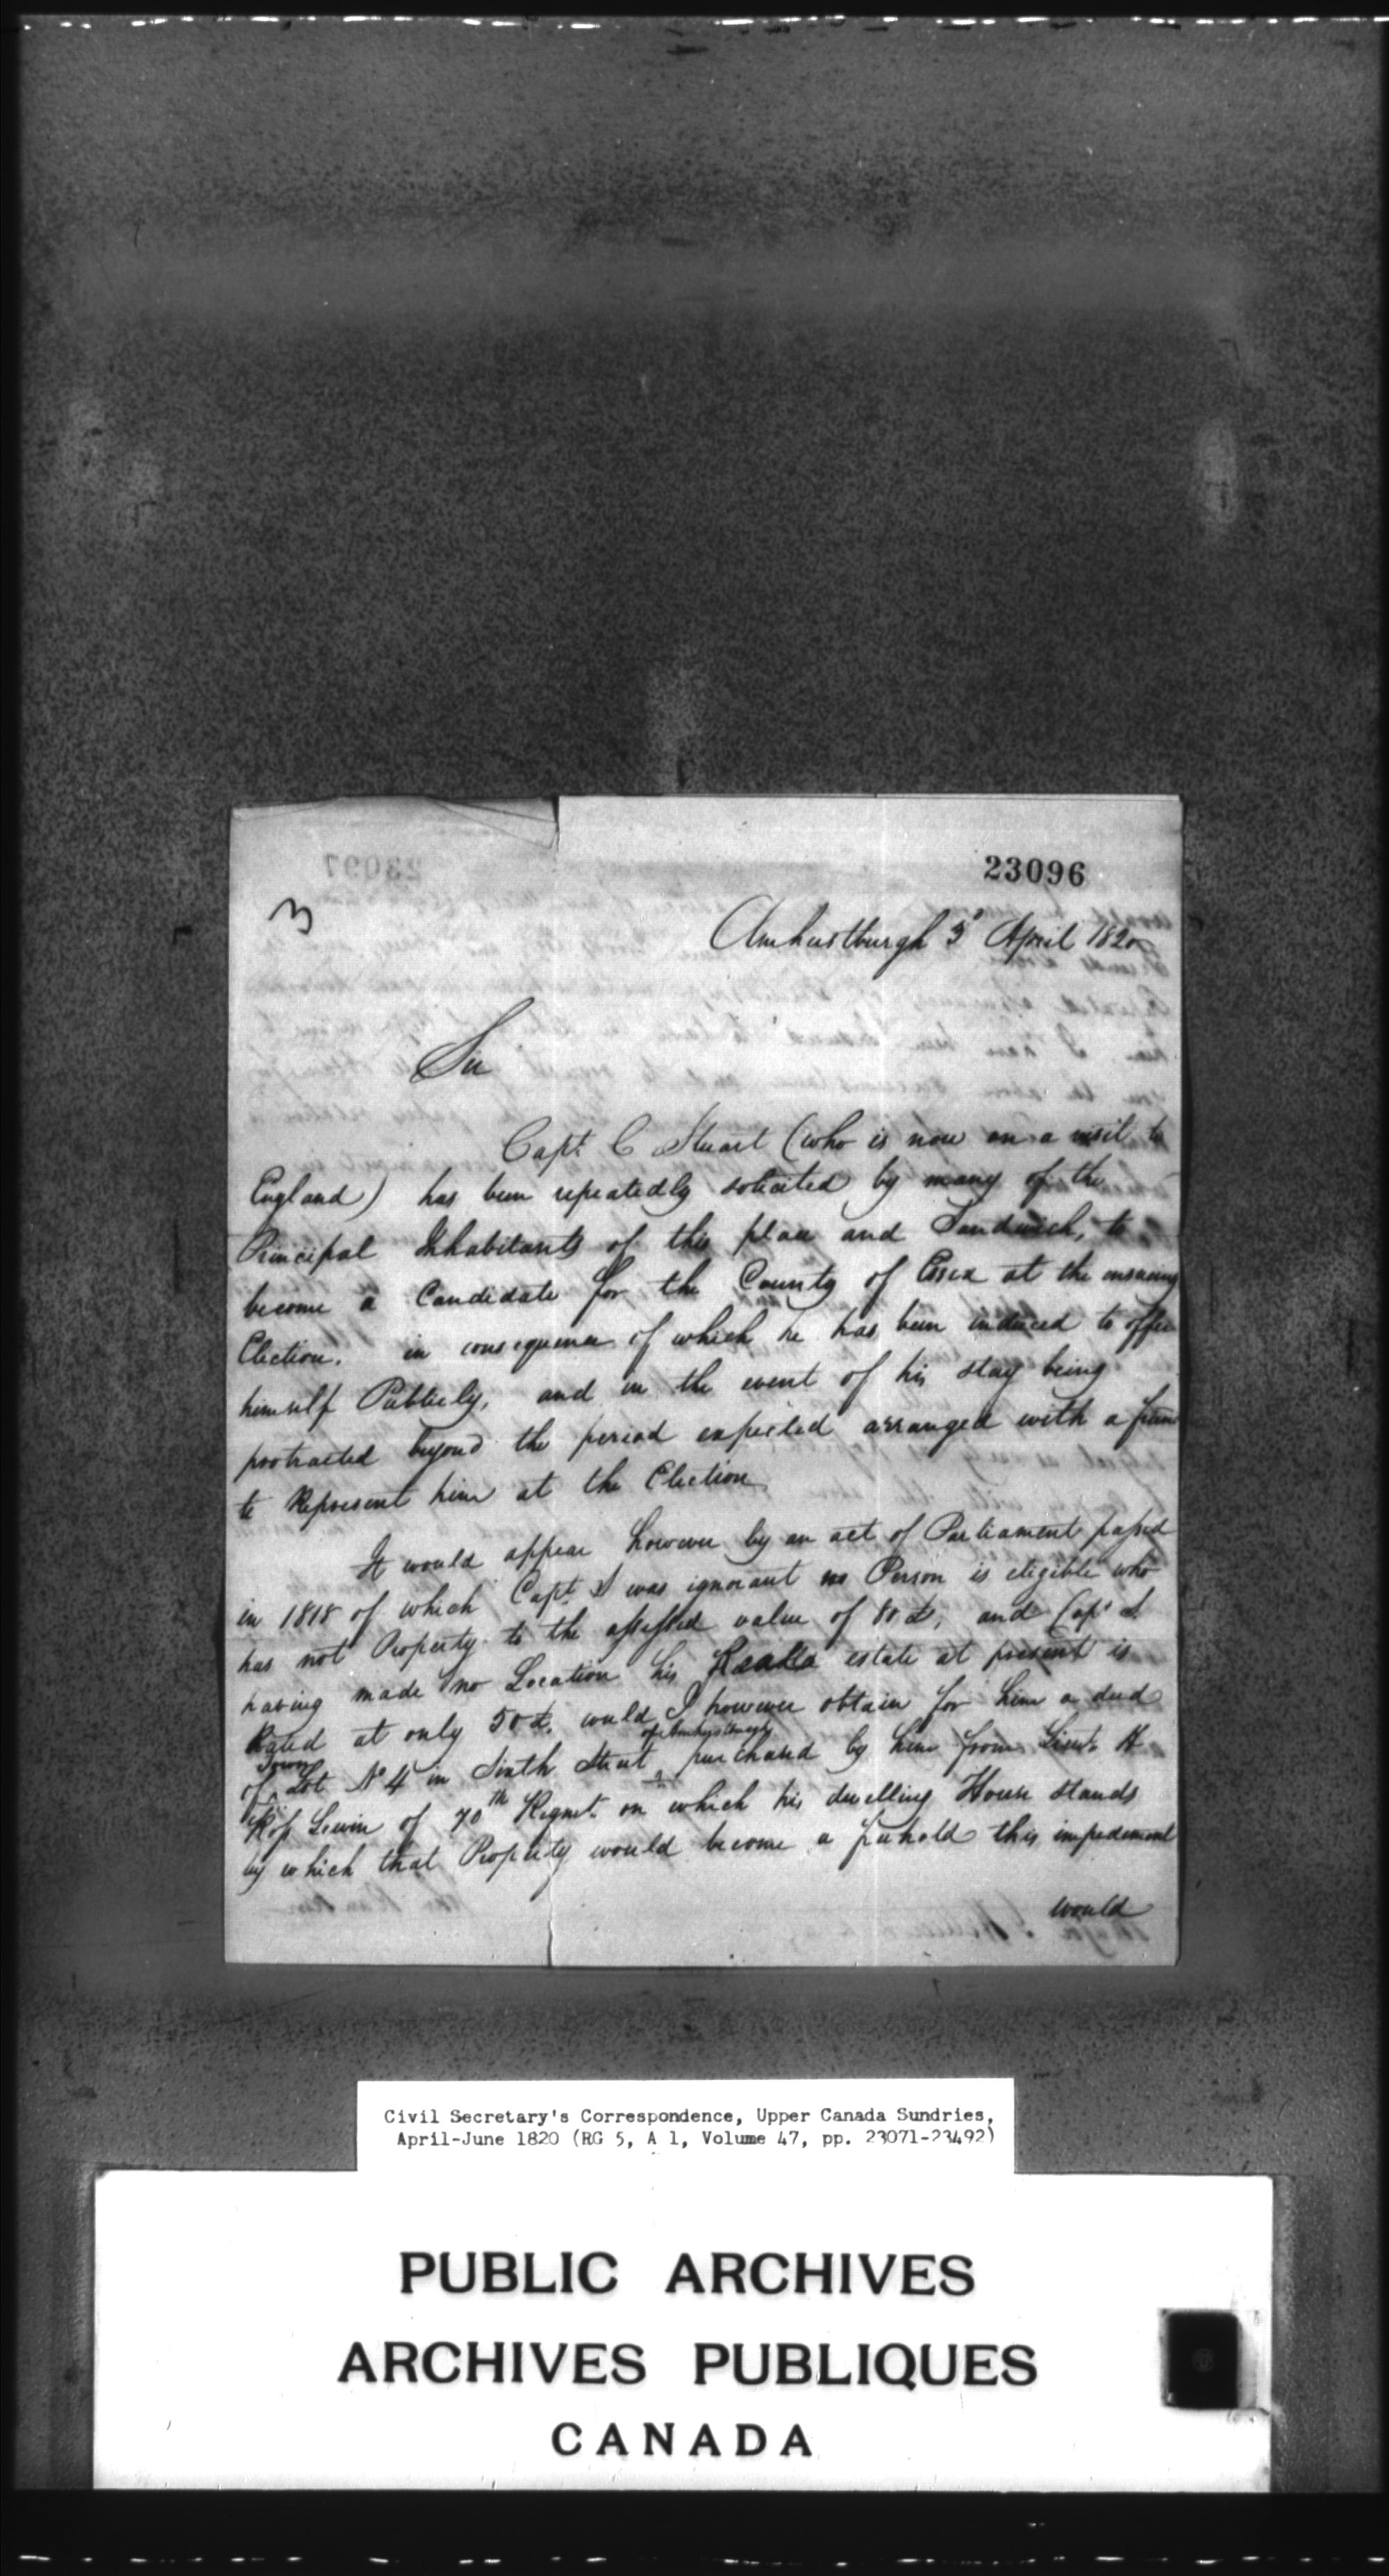 23096
3
Amherstburgh 3d April 1820
Sir
Capt. C Stuart (who is now on a visit to
England) has been repeatedly solicited by many of the
Principal Inhabitants of this place and Sandwich, to
become a Candidate for the County of Essex at the ensuing
Election. in consequence of which he has been induced to offer
himself Publicly, and in the event of his stay being
protracted beyond the period expected arranged with a
to Represent him at the Election
It would appear however by an act of Parliament passed
in 1818 of which Capt. S was ignorant no Person is eligible who
has not Property to the assessed value of 80£, and Capt S.
having made no Location his estate at present is
Rated at only 50£. could I however obtain for him a deed
of Town Lot No 4 in Sixth Street of Amherstburgh purchased by him from Lieut. H
Ross Lewin of 70th Regmt. on which his dwelling House stands
by which that Property would become a freehold this impediment
would
Civil Secretary's Correspondence, Upper Canada Sundries,
April-June 1820 (RG 5, A 1, Volume 47, pp. 23071-23492)
PUBLIC ARCHIVES
ARCHIVES PUBLIQUES
CANADA